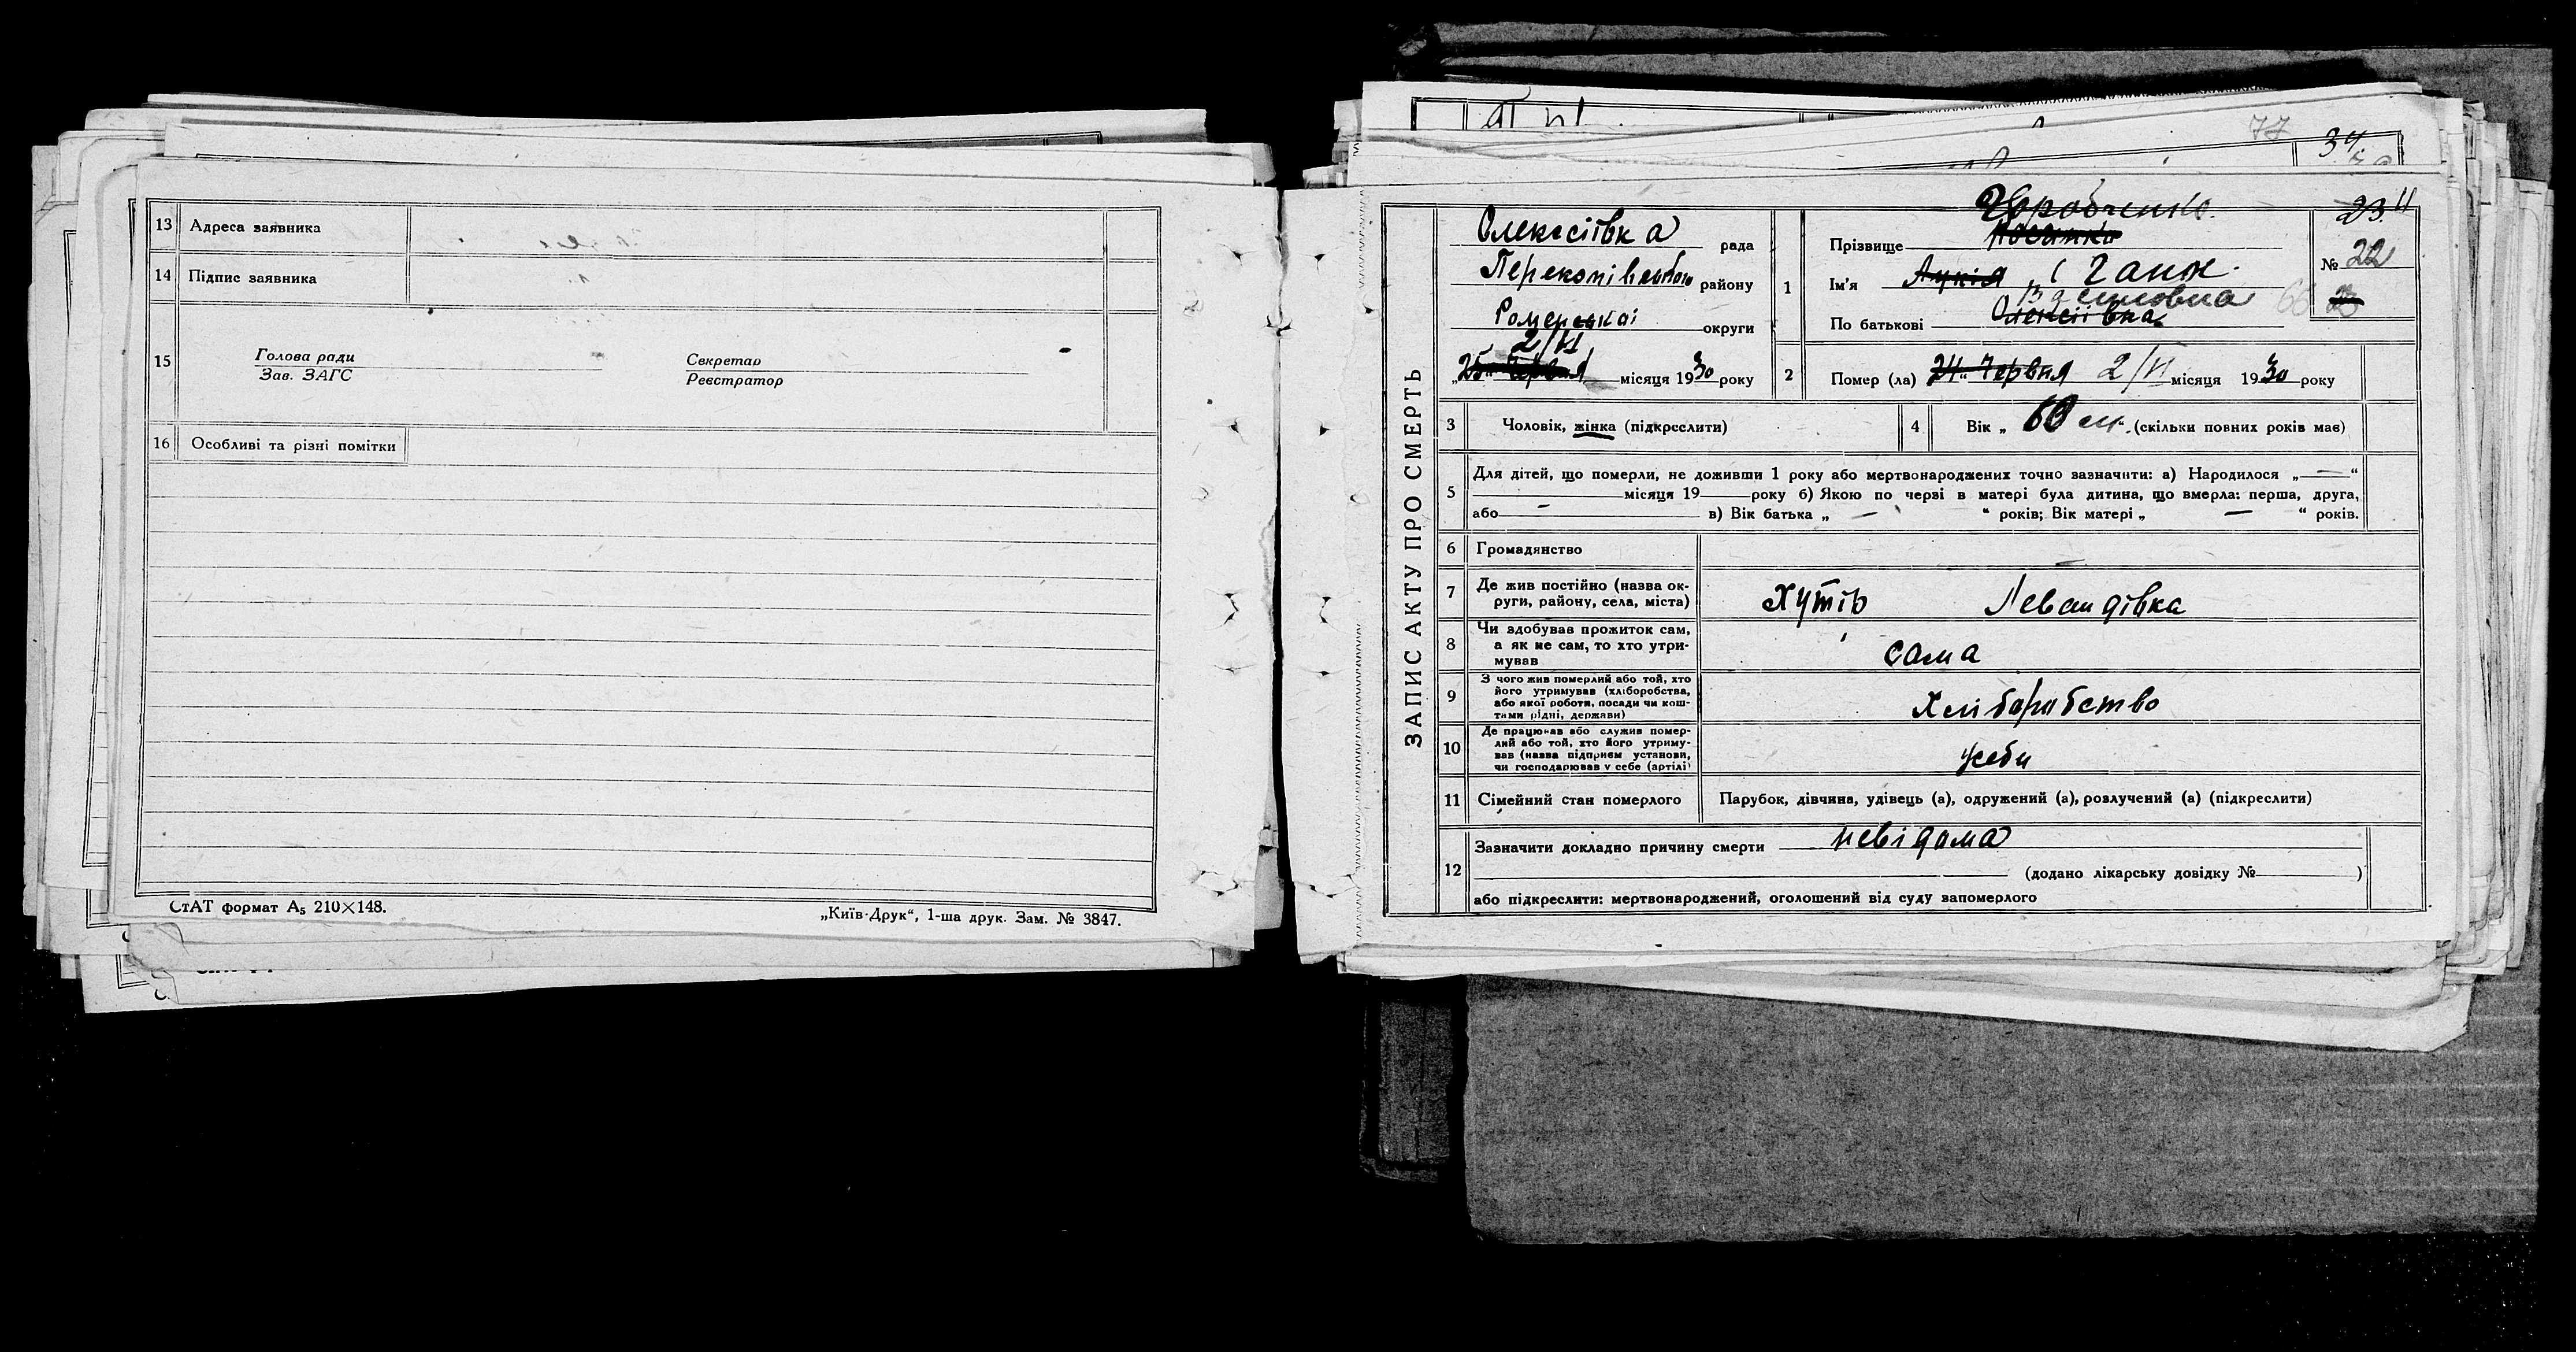 13 Адреса заявника
14 Підпис заявника
15 Голова ради Секретар
Зав. ЗАГС Реєстратор
16 Особливі та різні помітки
СтАТ формат А5 210×148.
„Київ-Друк“, 1-ша друк. Зам. № 3847.
77
34
ЗАПИС АКТУ ПРО СМЕРТЬ
Олексіївка рада
району
округи
2/VI
25 Червня місяця 1930 року
1
Прізвище
Ім'я Ганн
Василовна
По батькові Олексіївна
23
№ 22
2 Помер (ла) 24 Червня 2/VI місяця 1930 року
3 Чоловік, жінка (підкреслити)
4 Вік „ 60 “ (скільки повних років має)
5 Для дітей, що померли, не доживши 1 року або мертвонароджених точно зазначити: а) Народилося „ — “
місяця 19 року б) Якою по черзі в матері була дитина, що вмерла: перша, друга,
або — в) Вік батька „ — “ років; Вік матері „ — “ років.
6 Громадянство —
7 Де жив постійно (назва ок-
руги, району, села, міста) Хутір Левандівка
8 Чи здобував прожиток сам,
а як не сам, то хто утри-
мував сама
9 З чого жив померлий або той, хто
його утримував (хліборобства,
або якої роботи, посади чи кош-
тами рідні, держави) Хліборобство
10 Де працював або служив помер-
лий або той, хто його утриму-
вав (назва підприєм установи,
чи господарював у себе (артілі) усеби
11 Сімейний стан померлого Парубок, дівчина, удівець (а), одружений (а), розлучений (а) (підкреслити)
12 Зазначити докладно причину смерти невідома
(додано лікарську довідку № )
або підкреслити: мертвонароджений, оголошений від суду запомерлого